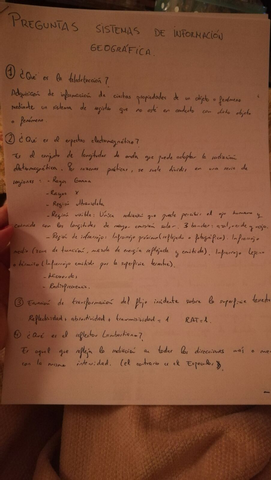 PREGUNTAS SISTEMAS DE INFORMACIÓN
GEOGRÁFICA.
① ¿Qué es la teledetección?
Adquisición de información de ciertas propiedades de un objeto o fenómeno
mediante un sistema de registro que no está en contacto con dicho objeto
o fenómeno
② ¿Qué es el espectro electromagnético?
Es el conjunto de longitudes de onda que puede adoptar la radiación
electromagnética. En términos prácticos, se suele dividir en una serie de
regiones: - Rayos Gamma
- Rayos X
- Región Ultravioleta
- Región visible: Única radiación que puede percibir el ojo humano y
coincide con las longitudes de onda
- Región de infrarrojo: Infrarrojo próximo (reflejado o fotográfico). Infrarrojo
medio (zona de transición, mezcla de energía reflejada y emitida). Infrarrojo lejano
o térmico (infrarrojo emitido por la superficie terrestre).
- Microondas
- Radiofrecuencia.
③ Ecuación de transformación del flujo incidente sobre la superficie terrestre
Reflectividad + absortividad + transmisividad = 1 R+A+T=1
④ ¿Qué es el reflector Lambertiano?
Es aquel que refleja la radiación en todas las direcciones
con la misma intensidad. (el contrario es el Especular)